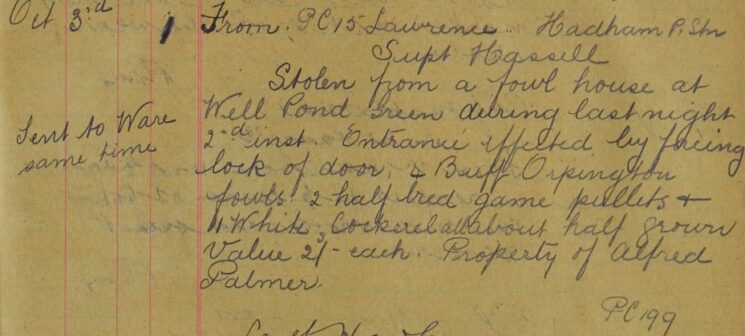 Oct 3rd 1 From PC 15 Lawrence Hadham P. Stn
Supt Hassell
Stolen from a fowl house at
Well Pond Green during last night
Sent to Ware
2nd inst. Entrance effected by forcing
same time
lock of door. 4 Buff Orpington
fowls 2 half bred game pullets &
White Cockerel all about half grown
Value 2/- each. Property of Alfred
Palmer
PC 199